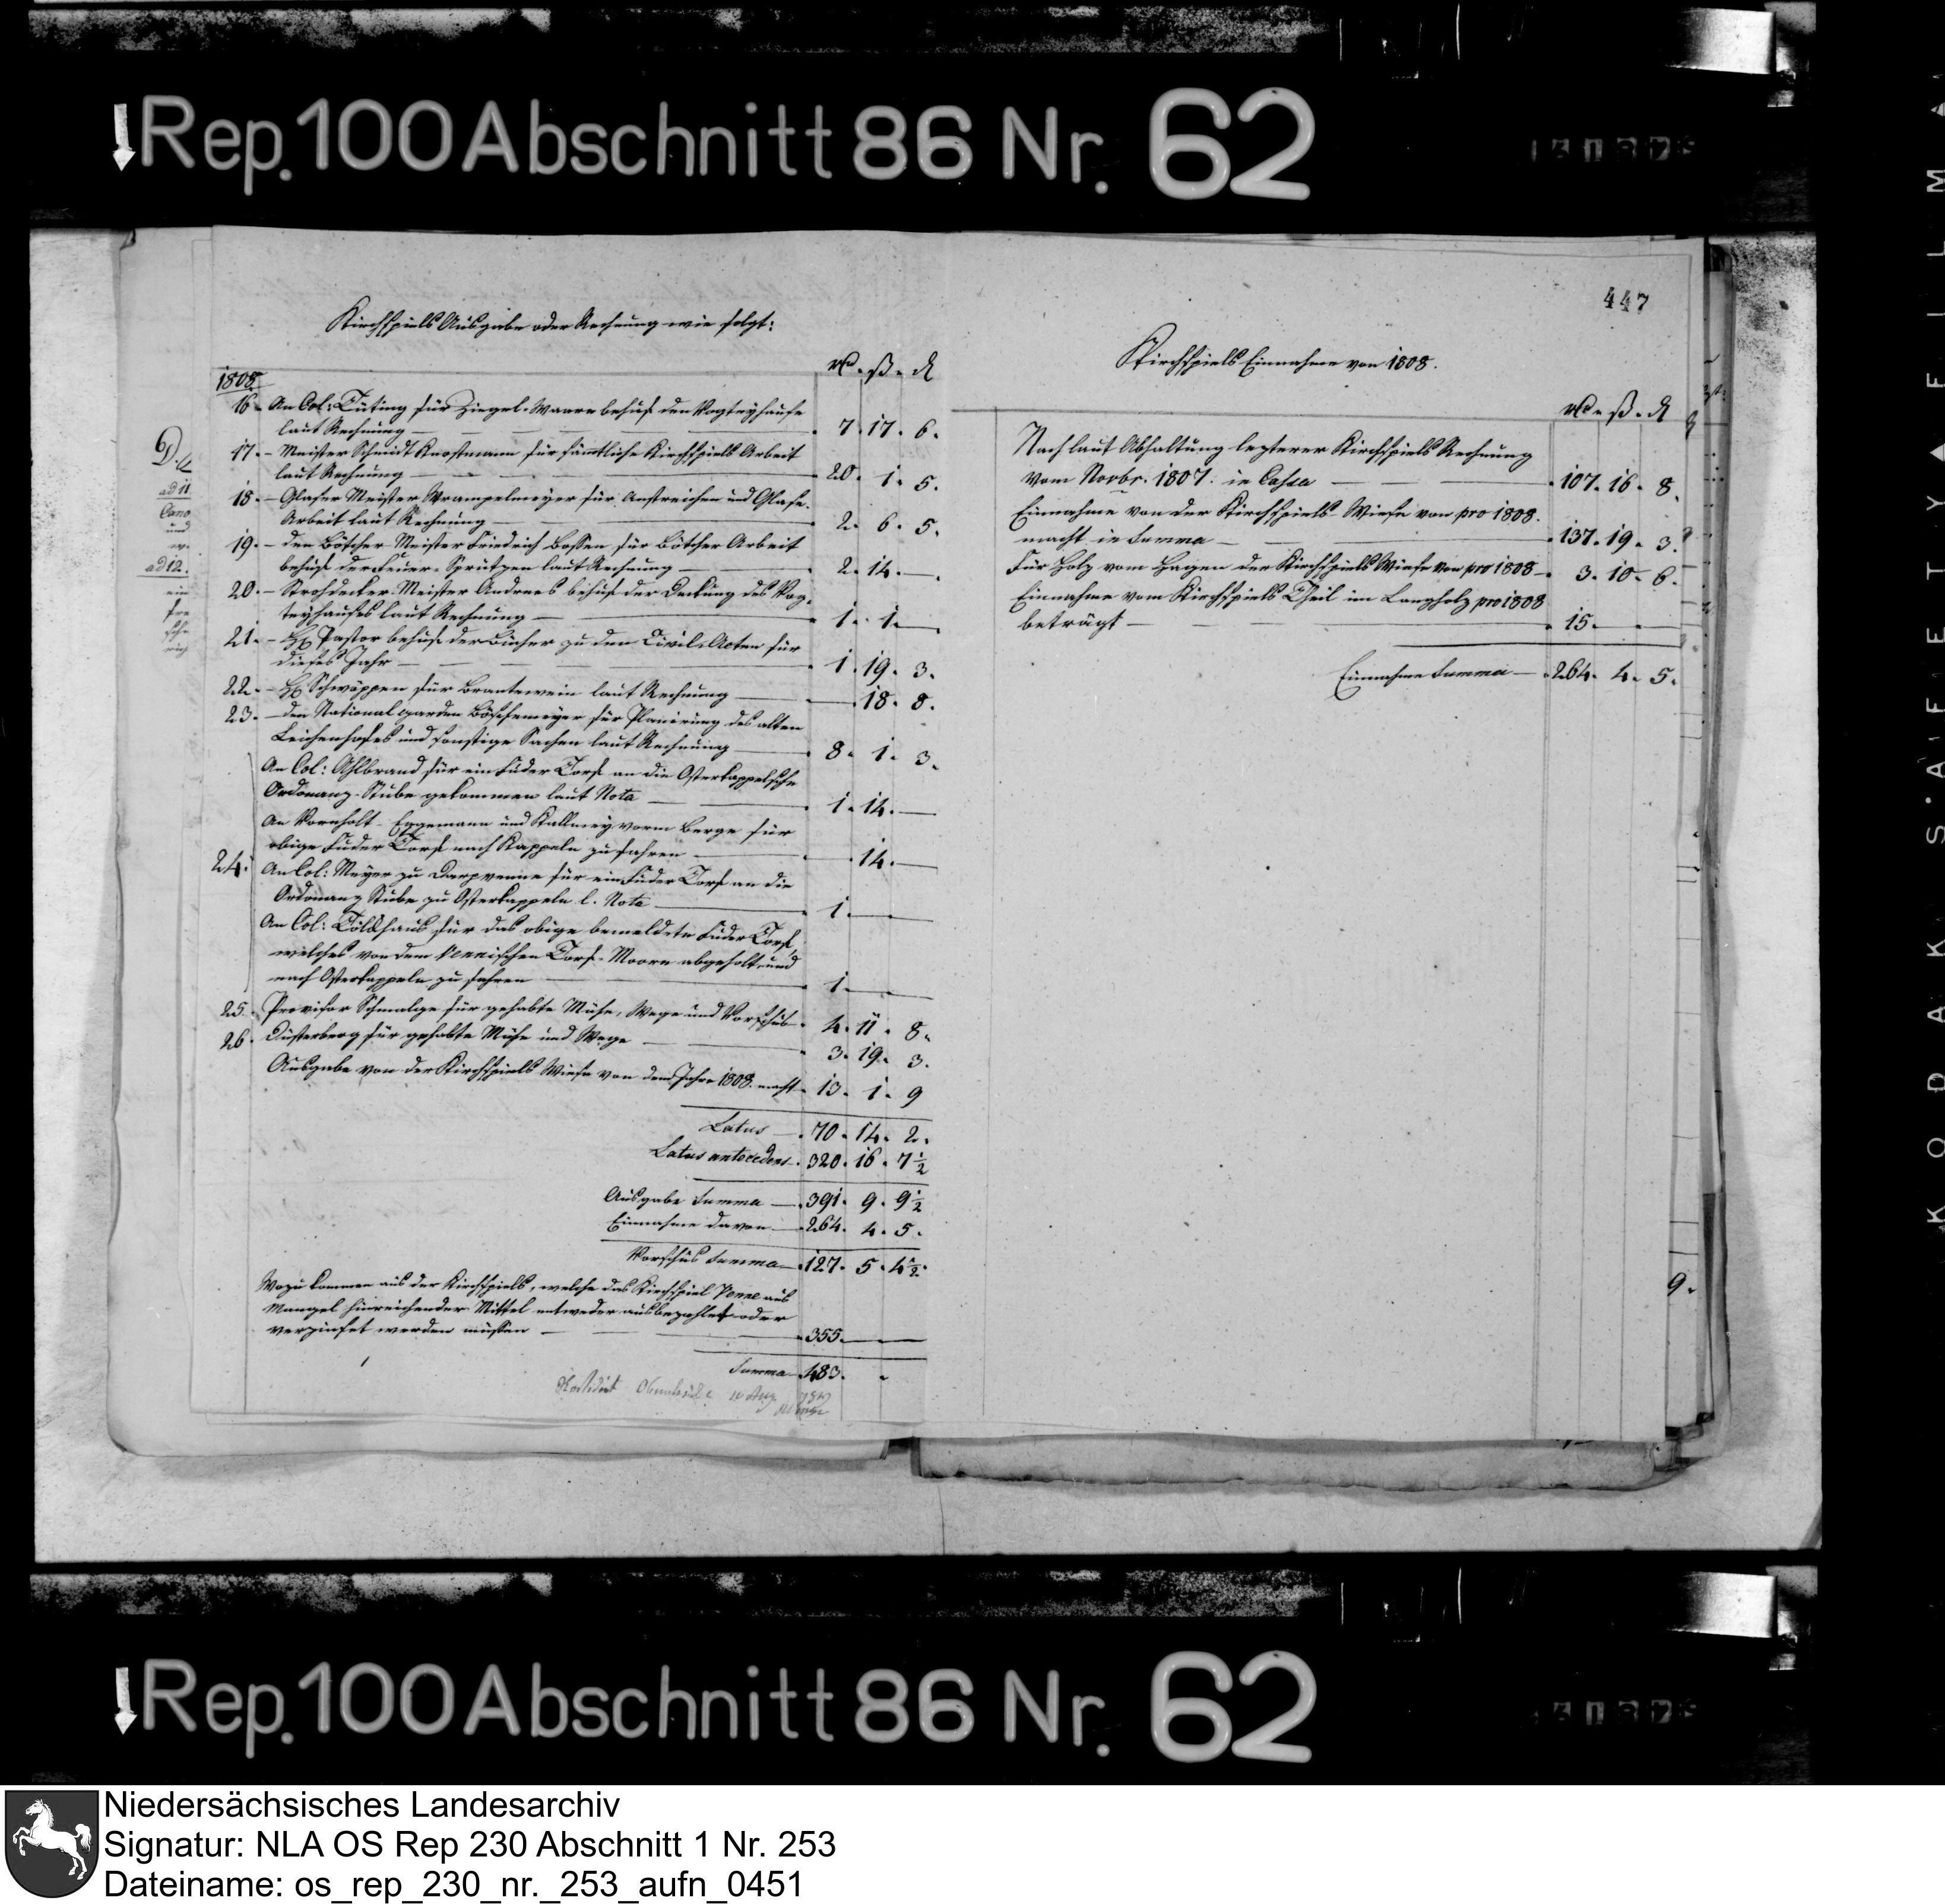 ↓Rep.100 Abschnitt 86 Nr. 62
447
Kirchspiels Ausgabe oder Rechnung wie folgt:
1808
16 – An Col: Tüting für Ziegel-Waare behuf den Vogteyhause
laut Rechnung — 7. 17. 6.
17. – Meister Schmidt Knostmann für sämtliche Kirchspiels Arbeit
laut Rechnung — 20. 1. 5.
18. – Glaser Meister Wrampelmeyer für Anstreichen und Glaser-
Arbeit laut Rechnung — 2. 6. 5.
19. – den Bötcher Meister Friedrich Bossen für Bötcher Arbeit
behuf der Feuer-Sprützen laut Rechnung — 2. 14. —.
20. – Strohdecker Meister Andrees behuf der Deckung des Vog-
teyhauses laut Rechnung — 1. 1. —
21. – H. Pastor behuf der Bücher zu den Civil-Acten für
dieses Jahr — 1. 19. 3.
22. – H. Schwöppen für Brantewein laut Rechnung — 18. 8.
23. – den National Garden Böschemeyer für Planierung des alten
Leichenhofes und sonstige Sachen laut Rechnung — 8. 1. 3.
An Col: Ahlbrand für ein Fuder Torf an die Osterkappelsche
Ordonanz-Stube gekommen laut Nota — 1. 14. —
An Vornholt Eggemann und Kallmey vorm Berge für
obige Fuder Torf nach Kappeln zu fahren — 14. —
24. An Col: Meyer zu Darpvenne für ein Fuder Torf an die
Ordonanz Stube zu Osterkappeln l. Nota — 1. —
An Col: für das obige bemeldete Fuder Torf,
welches von dem Vennischen Torf-Moore abgeholt und
nach Osterkappeln zu fahren — 1. —
25. Provisor Schmalge für gehabte Mühe, Wege und Vorschus — 4. 11. 8.
26. Düsterberg für gehabte Mühe und Wege — 3. 19. 3.
Ausgabe von der Kirchspiels Wiese von dem Jahre 1808. macht — 13. 1. 9
Latus — 70. 14. 2.
Latus antecedens. 320. 16. 7½
Ausgabe Summa — 391. 9. 9½
Einnahme davon — 264. 4. 5.
Vorschus Summa — 127. 5. 4½.
Wozu kommen aus der Kirchspiels, welche das Kirchspiel Venne aus
Mangel hinreichender Mittel entweder ausbezahlet oder
verzinset werden müssen — 355. —
Summa — 483.
Kirchspiels Einnahme von 1808.
Nach laut Abhaltung lezterer Kirchspiels Rechnung
vom Novbr. 1807. in Cassa — 107. 16. 8.
Einnahme von der Kirchspiels-Wiese von pro 1808.
macht in Summa — 137. 19. 3.
Für Holz vom Hagen der Kirchspiels Wiese von pro 1808 — 3. 10. 6.
Einnahme vom Kirchspiels Theil im Langholz pro 1808
beträgt — 15. —
Einnahme Summa — 264. 4. 5.
KODAK SAFETY FILM
↓Rep.100 Abschnitt 86 Nr. 62
Niedersächsisches Landesarchiv
Signatur: NLA OS Rep 230 Abschnitt 1 Nr. 253
Dateiname: os_rep_230_nr._253_aufn_0451